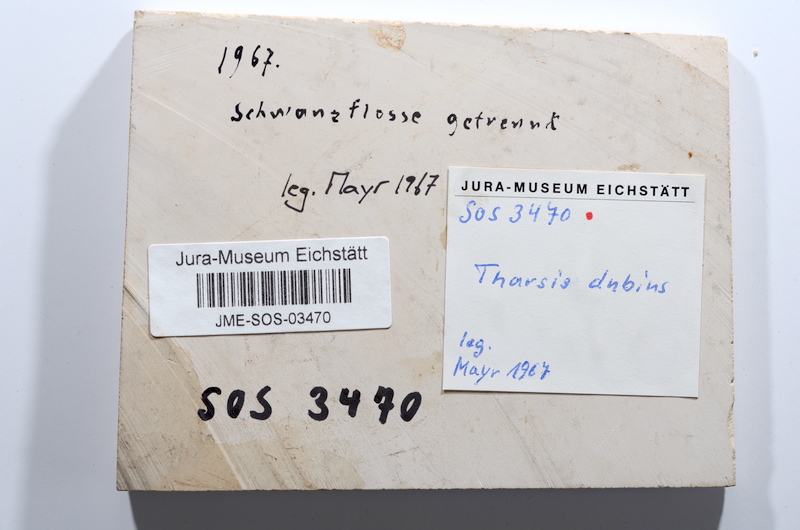 1967.
Schwanzflosse getrennt
leg. Mayr 1967
JURA-MUSEUM EICHSTÄTT
SOS 3470
Tharsis dubius
leg.
Mayr 1967
Jura-Museum Eichstätt
JME-SOS-03470
SOS 3470